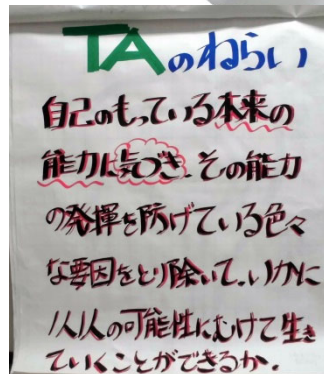 TAのねらい
自己のもっている本来の
能力に気づき、その能力
の発揮を防げている色々
な要因をとり除いて、いかに
人人の可能性にむけて生き
ていくことができるか.